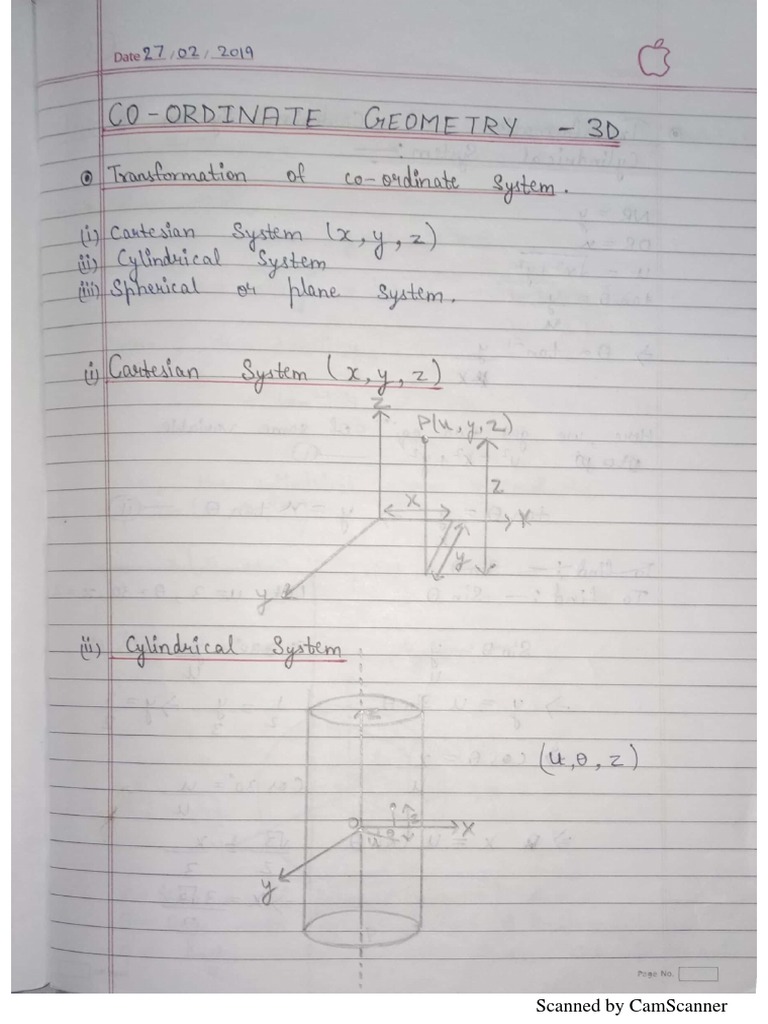 Date 27/02/2019
CO-ORDINATE GEOMETRY - 3D
Transformation of co-ordinate System.
(i) Cartesian System (x, y, z)
(ii) Cylindrical System
(iii) Spherical or plane System.
(i) Cartesian System (x, y, z)
z
P(u, y, z)
z
x
x
y
y
(ii) Cylindrical System
z
(u, θ, z)
O
x
θ
u
y
Page No.
Scanned by CamScanner